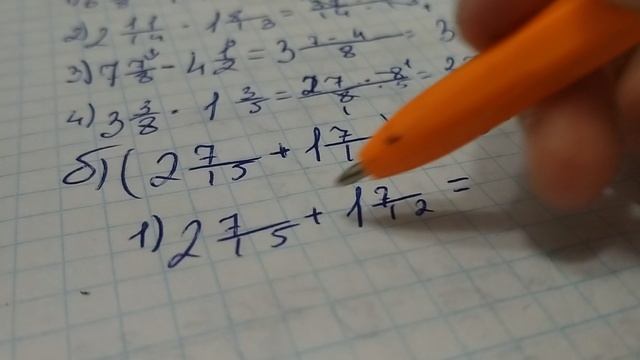 2) 2 11/14 · 1
3) 7 7/8 - 4 1/2 = 3 7-4/8 = 3
4) 3 3/8 · 1 3/5 = 27 · 8/8 · 5 =
б) (2 7/15 + 1 7/1
1) 2 7/15 + 1 7/12 =